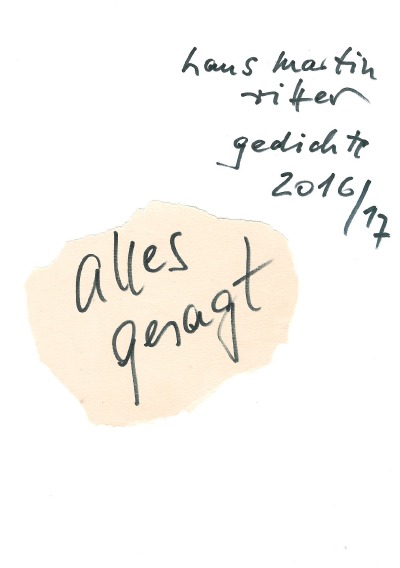 hans martin
ritter
gedichte
2016/17
alles
gesagt